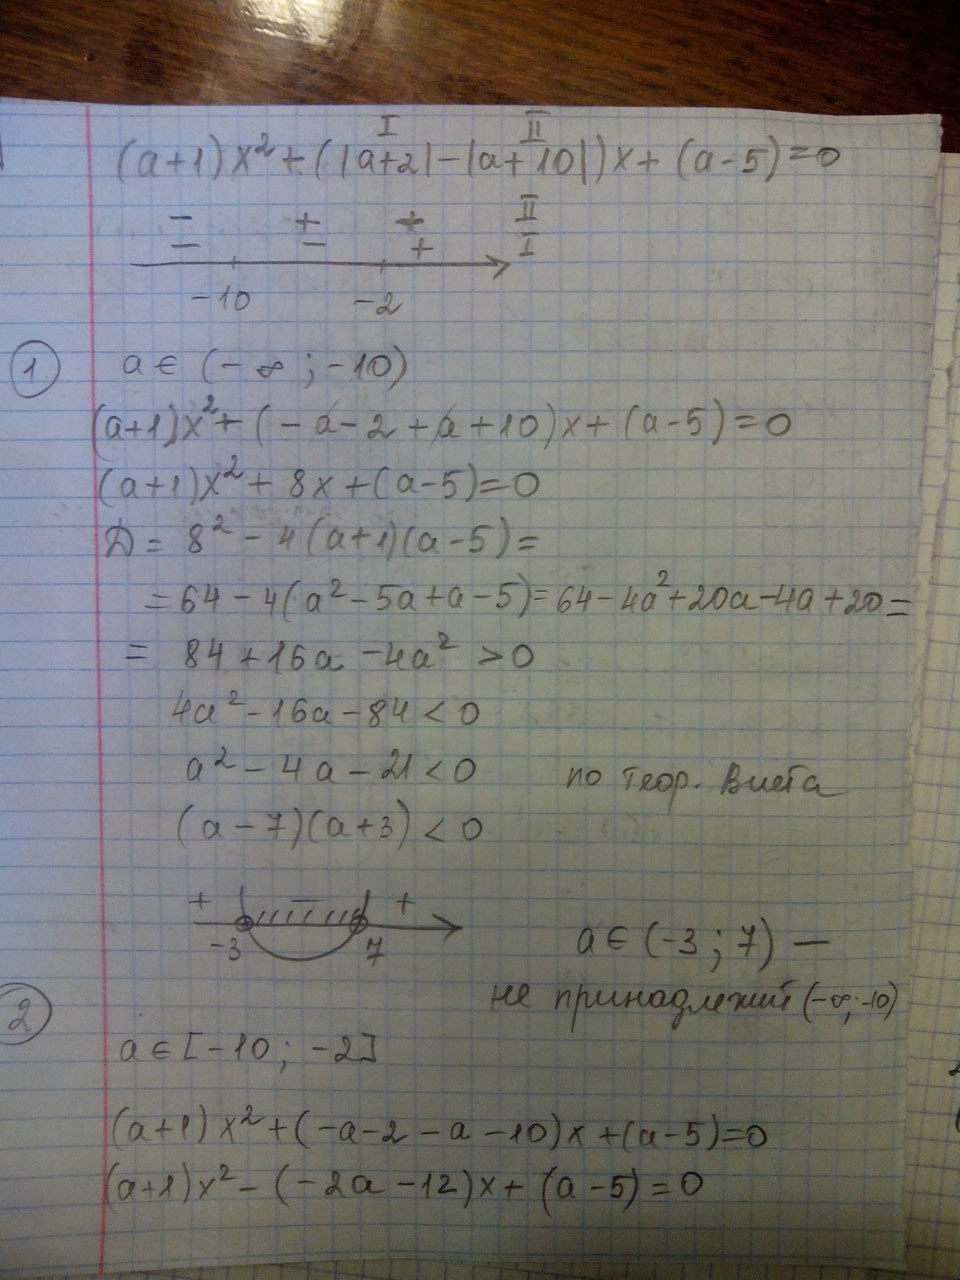 I II
(a+1)x² + (|a+2| - |a+10|)x + (a-5) = 0
− + + II
− − + I
-10 -2
1 a ∈ (-∞; -10)
(a+1)x² + (-a-2+a+10)x + (a-5) = 0
(a+1)x² + 8x + (a-5) = 0
D = 8² - 4(a+1)(a-5) =
= 64 - 4(a² - 5a + a - 5) = 64 - 4a² + 20a - 4a + 20 =
= 84 + 16a - 4a² > 0
4a² - 16a - 84 < 0
a² - 4a - 21 < 0 по теор. Виета
(a-7)(a+3) < 0
+ − +
-3 7 a ∈ (-3; 7) —
не принадлежит (-∞; -10)
2
a ∈ [-10; -2]
(a+1)x² + (-a-2-a-10)x + (a-5) = 0
(a+1)x² - (-2a-12)x + (a-5) = 0